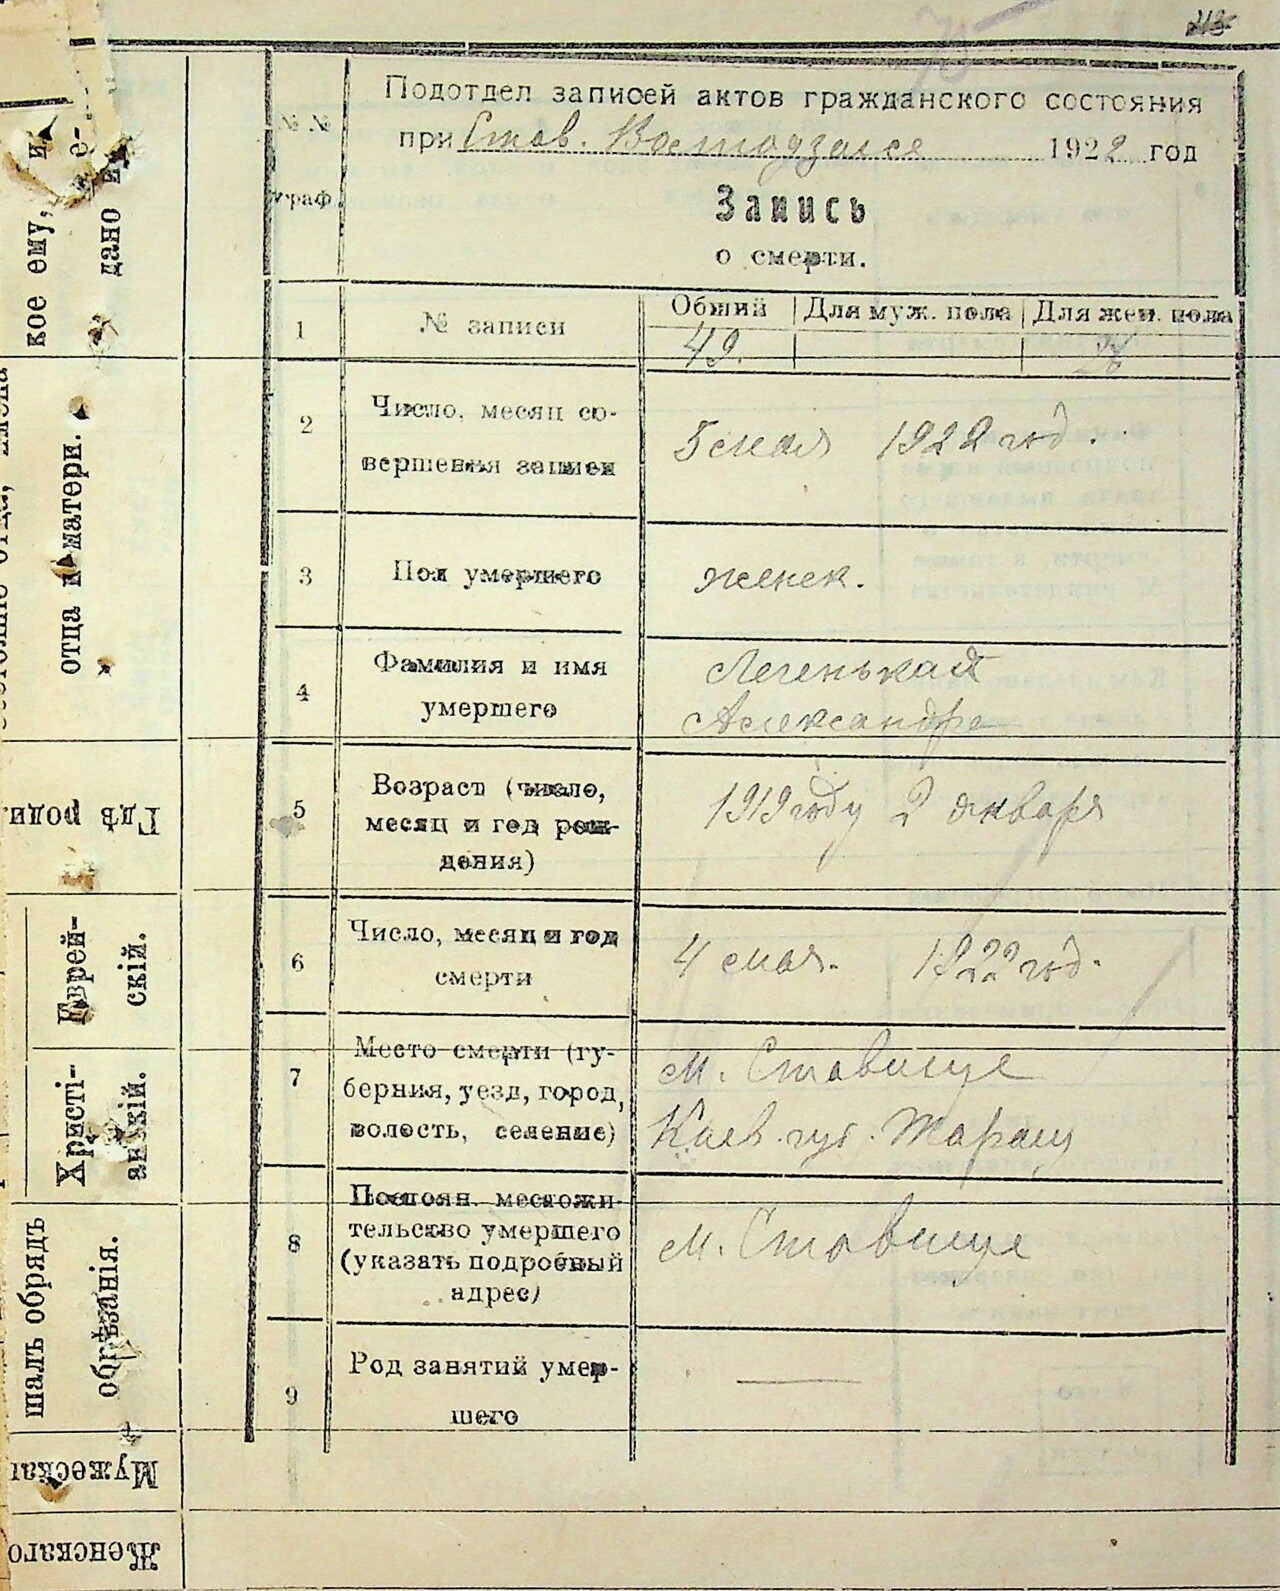 213
Подотдел записей актов гражданского состояния
при Став. Волтодзагсе 1922 год
№ №
граф.
Запись
о смерти.
1 № записи
Общий Для муж. пола Для жен. пола
49. 26
2 Число, месяц со-
вершения записи
5 мая 1922 год.
3 Пол умершего
женск.
4 Фамилия и имя
умершего
Легенькая
Александра
5 Возраст (число,
месяц и год рож-
дения)
1919 году 2 января
6 Число, месяц и год
смерти
4 мая. 1922 год.
7 Место смерти (гу-
берния, уезд, город,
волость, селение)
м. Ставище
Киев. губ. Таращ
8 Постоян. местожи-
тельство умершего
(указать подробный
адрес)
м. Ставище
9 Род занятий умер-
шего
кое ему, и
дано и
отца и матери.
Гдѣ роди
Еврей-
скій.
Христі-
анскій.
шалъ обрядъ
обрѣзанія.
Мужескаг
Женскаго